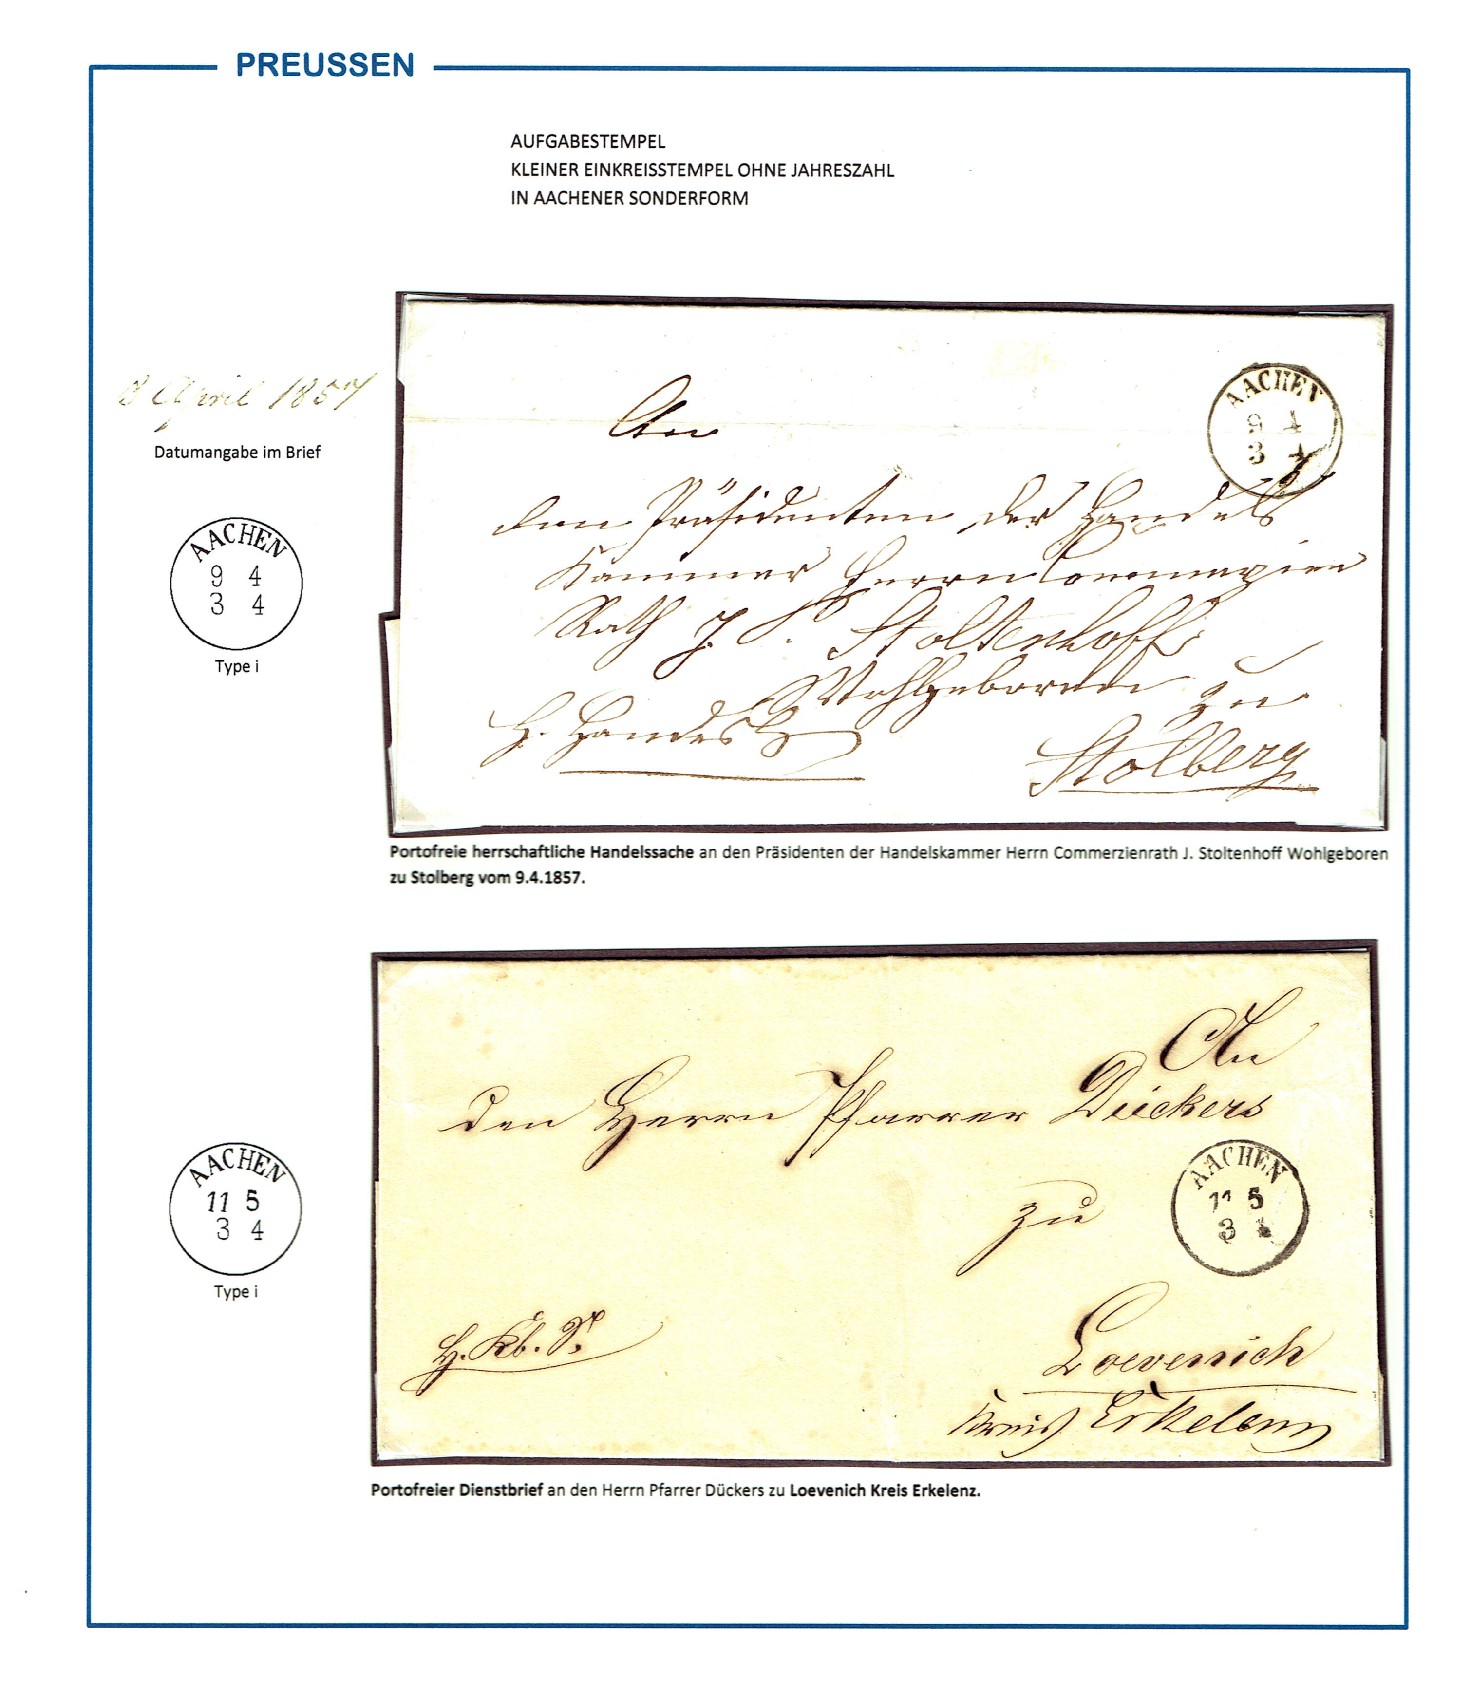 PREUSSEN
AUFGABESTEMPEL
KLEINER EINKREISSTEMPEL OHNE JAHRESZAHL
IN AACHENER SONDERFORM
8 April 1857
Datumangabe im Brief
AACHEN
9 4
3 4
Type i
AACHEN
9 4
3 4
An
den Präsidenten der Handels
Kammer Herrn Commerzien
Rath J. S. Stoltenhoff
Wohlgeboren zu
H. Handels
Stolberg
Portofreie herrschaftliche Handelssache an den Präsidenten der Handelskammer Herrn Commerzienrath J. Stoltenhoff Wohlgeboren
zu Stolberg vom 9.4.1857.
AACHEN
11 5
3 4
Type i
An
den Herrn Pfarrer Dückers
zu
AACHEN
11 5
3 4
H. Kb. S.
Loevenich
Kreis Erkelenz
Portofreier Dienstbrief an den Herrn Pfarrer Dückers zu Loevenich Kreis Erkelenz.